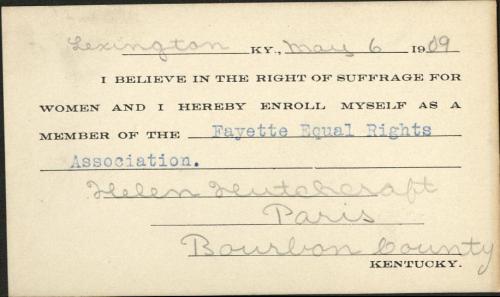 Lexington KY., May 6 1909
I BELIEVE IN THE RIGHT OF SUFFRAGE FOR
WOMEN AND I HEREBY ENROLL MYSELF AS A
MEMBER OF THE Fayette Equal Rights
Association.
Helen Hutchcraft
Paris
Bourbon County
KENTUCKY.